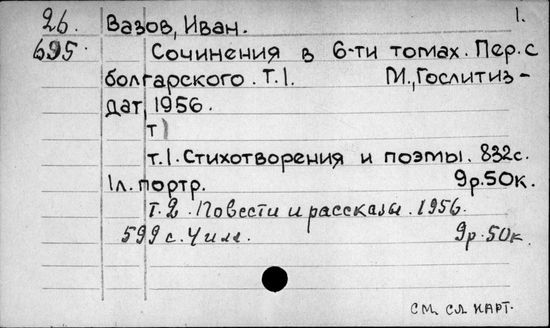 26. Вазов, Иван. 1.
695. Сочинения в 6-ти томах. Пер. с
болгарского. Т.1. М., Гослитиз-
дат, 1956.
т)
т.1. Стихотворения и поэмы. 832с.
1л. портр. 9р.50к.
Т.2. Повести и рассказы. 1956.
599 с. Ч илл. 9р.50к.
см. сл. карт.